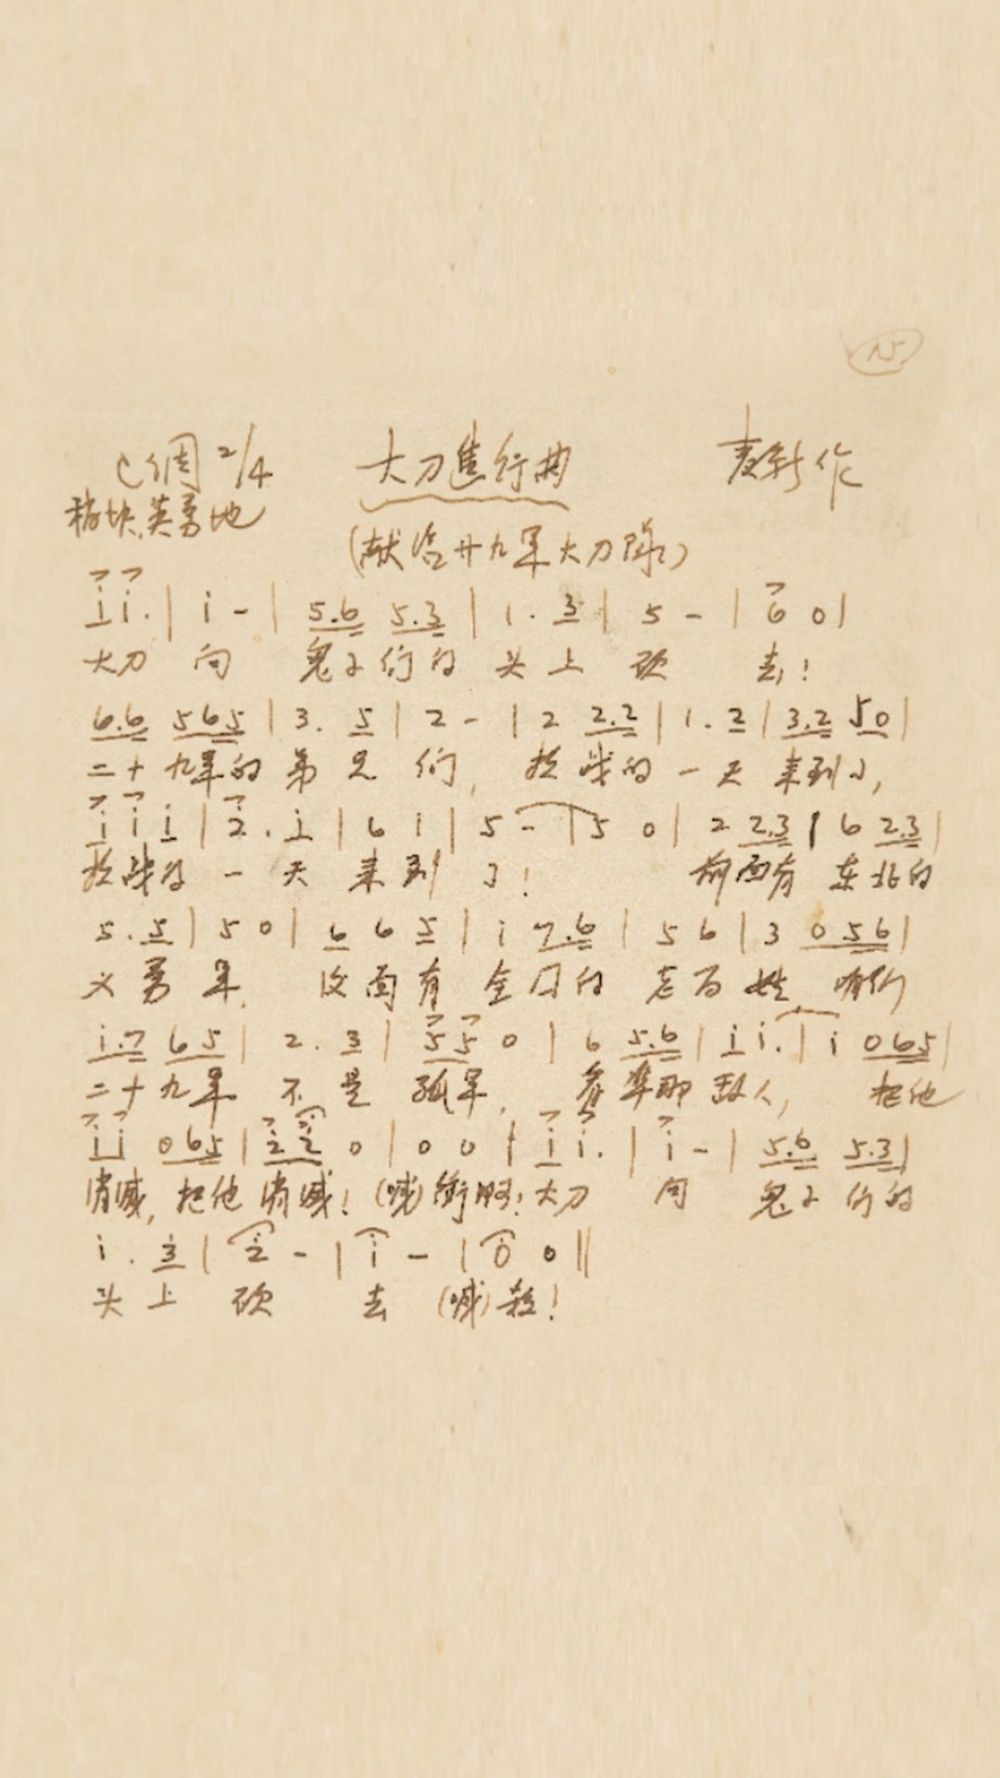 15
C调 2/4 大刀進行曲 麦新作
稍快.英勇地
(献给廿九军大刀队)
i i. | i - | 5.6 5.3 | 1. 3 | 5 - | 6 0 |
大刀 向 鬼子们的 头上 砍 去!
6.6 565 | 3. 5 | 2 - | 2 2.2 | 1. 2 | 3.2 50 |
二十九军的弟兄们, 抗战的一天来到了,
i i i | 2. i | 6 i | 5 - | 5 0 | 2 2.3 | 6 2.3 |
抗战的一天来到了! 前面有东北的
5. 5 | 5 0 | 6 6 5 | i 7.6 | 5 6 | 3 0 5 6 |
义勇军, 后面有全国的老百姓 咱们
i.7 6 5 | 2. 3 | 5 5 0 | 6 5.6 | i i. | i 0 6 5 |
二十九军不是孤军, 看準那敌人, 把他
i i 0 6 5 | 2 2 0 | 0 0 | i i. | i - | 5.6 5.3 |
消滅, 把他消滅! (喊)衝啊! 大刀 向 鬼子们的
i. 3 | 2 - | i - | 0 0 ||
头上 砍 去 (喊)殺!